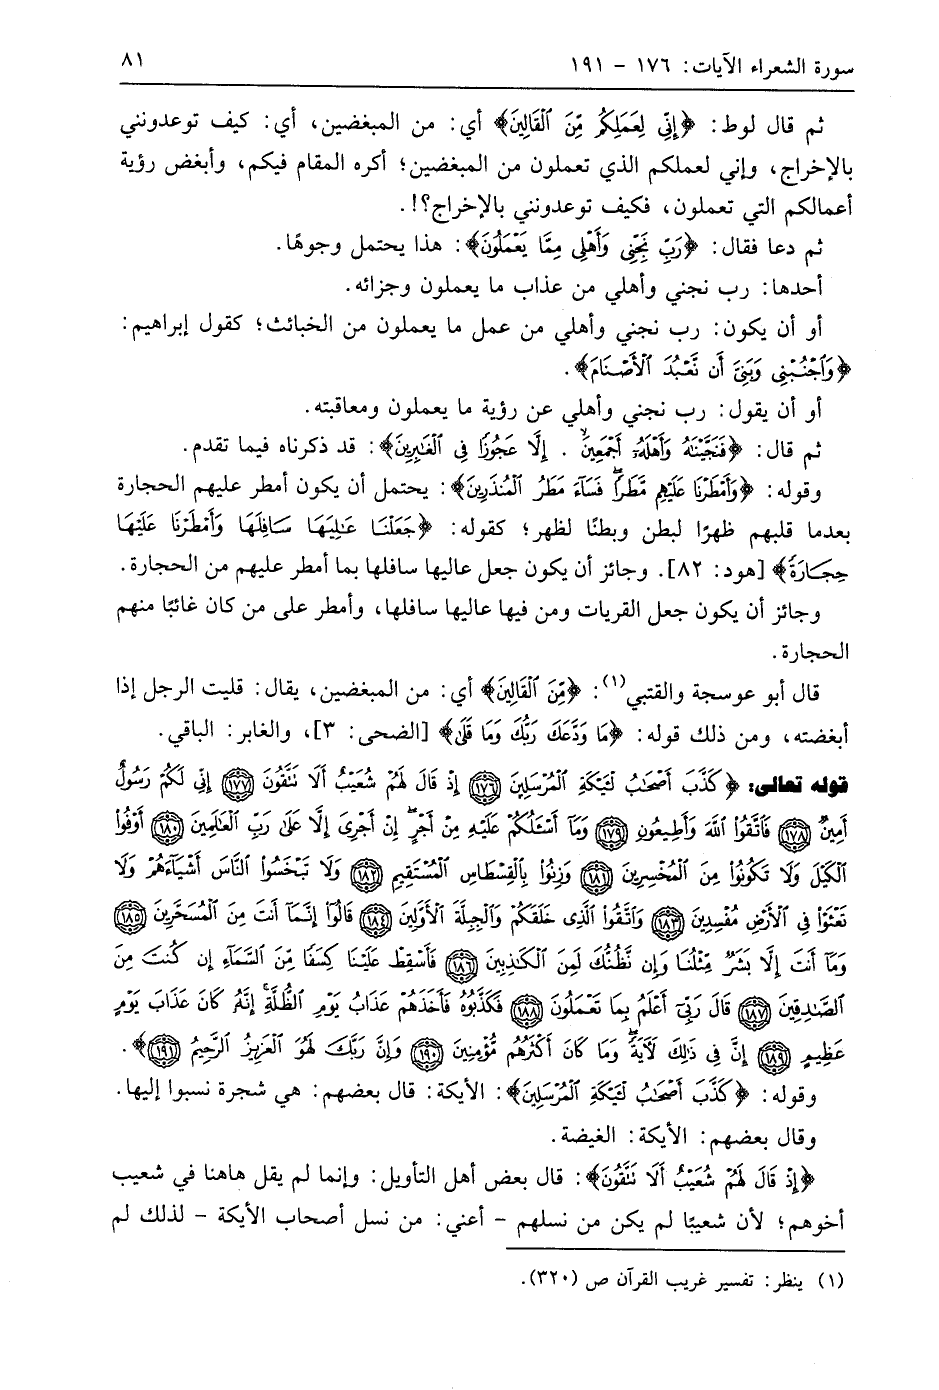 سورة الشعراء الآيات: ١٧٦ - ١٩١
٨١
ثم قال لوط: ﴿إِنِّي لِعَمَلِكُم مِّنَ ٱلْقَالِينَ﴾ أي: من المبغضين، أي: كيف توعدونني
بالإخراج، وإني لعملكم الذي تعملون من المبغضين؛ أكره المقام فيكم، وأبغض رؤية
أعمالكم التي تعملون، فكيف توعدونني بالإخراج؟!.
ثم دعا فقال: ﴿رَبِّ نَجِّنِي وَأَهْلِي مِمَّا يَعْمَلُونَ﴾: هذا يحتمل وجوهًا.
أحدها: رب نجني وأهلي من عذاب ما يعملون وجزائه.
أو أن يكون: رب نجني وأهلي من عمل ما يعملون من الخبائث؛ كقول إبراهيم:
﴿وَٱجْنُبْنِي وَبَنِيَّ أَن نَّعْبُدَ ٱلْأَصْنَامَ﴾.
أو أن يقول: رب نجني وأهلي عن رؤية ما يعملون ومعاقبته.
ثم قال: ﴿فَنَجَّيْنَٰهُ وَأَهْلَهُۥٓ أَجْمَعِينَ . إِلَّا عَجُوزًا فِي ٱلْغَٰبِرِينَ﴾: قد ذكرناه فيما تقدم.
وقوله: ﴿وَأَمْطَرْنَا عَلَيْهِم مَّطَرًا ۖ فَسَآءَ مَطَرُ ٱلْمُنذَرِينَ﴾: يحتمل أن يكون أمطر عليهم الحجارة
بعدما قلبهم ظهرًا لبطن وبطنًا لظهر؛ كقوله: ﴿جَعَلْنَا عَٰلِيَهَا سَافِلَهَا وَأَمْطَرْنَا عَلَيْهَا
حِجَارَةً﴾ [هود: ٨٢]. وجائز أن يكون جعل عاليها سافلها بما أمطر عليهم من الحجارة.
وجائز أن يكون جعل القريات ومن فيها عاليها سافلها، وأمطر على من كان غائبًا منهم
الحجارة.
قال أبو عوسجة والقتبي(١): ﴿مِّنَ ٱلْقَالِينَ﴾ أي: من المبغضين، يقال: قليت الرجل إذا
أبغضته، ومن ذلك قوله: ﴿مَا وَدَّعَكَ رَبُّكَ وَمَا قَلَىٰ﴾ [الضحى: ٣]، والغابر: الباقي.
قوله تعالى: ﴿كَذَّبَ أَصْحَٰبُ لْـَٔيْكَةِ ٱلْمُرْسَلِينَ ١٧٦ إِذْ قَالَ لَهُمْ شُعَيْبٌ أَلَا تَتَّقُونَ ١٧٧ إِنِّي لَكُمْ رَسُولٌ
أَمِينٌ ١٧٨ فَٱتَّقُوا۟ ٱللَّهَ وَأَطِيعُونِ ١٧٩ وَمَآ أَسْـَٔلُكُمْ عَلَيْهِ مِنْ أَجْرٍ ۖ إِنْ أَجْرِيَ إِلَّا عَلَىٰ رَبِّ ٱلْعَٰلَمِينَ ١٨٠ أَوْفُوا۟
ٱلْكَيْلَ وَلَا تَكُونُوا۟ مِنَ ٱلْمُخْسِرِينَ ١٨١ وَزِنُوا۟ بِٱلْقِسْطَاسِ ٱلْمُسْتَقِيمِ ١٨٢ وَلَا تَبْخَسُوا۟ ٱلنَّاسَ أَشْيَآءَهُمْ وَلَا
تَعْثَوْا۟ فِي ٱلْأَرْضِ مُفْسِدِينَ ١٨٣ وَٱتَّقُوا۟ ٱلَّذِي خَلَقَكُمْ وَٱلْجِبِلَّةَ ٱلْأَوَّلِينَ ١٨٤ قَالُوٓا۟ إِنَّمَآ أَنتَ مِنَ ٱلْمُسَحَّرِينَ ١٨٥
وَمَآ أَنتَ إِلَّا بَشَرٌ مِّثْلُنَا وَإِن نَّظُنُّكَ لَمِنَ ٱلْكَٰذِبِينَ ١٨٦ فَأَسْقِطْ عَلَيْنَا كِسَفًا مِّنَ ٱلسَّمَآءِ إِن كُنتَ مِنَ
ٱلصَّٰدِقِينَ ١٨٧ قَالَ رَبِّيٓ أَعْلَمُ بِمَا تَعْمَلُونَ ١٨٨ فَكَذَّبُوهُ فَأَخَذَهُمْ عَذَابُ يَوْمِ ٱلظُّلَّةِ ۚ إِنَّهُۥ كَانَ عَذَابَ يَوْمٍ
عَظِيمٍ ١٨٩ إِنَّ فِي ذَٰلِكَ لَءَايَةً ۖ وَمَا كَانَ أَكْثَرُهُم مُّؤْمِنِينَ ١٩٠ وَإِنَّ رَبَّكَ لَهُوَ ٱلْعَزِيزُ ٱلرَّحِيمُ ١٩١﴾.
وقوله: ﴿كَذَّبَ أَصْحَٰبُ لْـَٔيْكَةِ ٱلْمُرْسَلِينَ﴾: الأيكة: قال بعضهم: هي شجرة نسبوا إليها.
وقال بعضهم: الأيكة: الغيضة.
﴿إِذْ قَالَ لَهُمْ شُعَيْبٌ أَلَا تَتَّقُونَ﴾: قال بعض أهل التأويل: وإنما لم يقل هاهنا في شعيب
أخوهم؛ لأن شعيبًا لم يكن من نسلهم - أعني: من نسل أصحاب الأيكة - لذلك لم
(١) ينظر: تفسير غريب القرآن ص (٣٢٠).